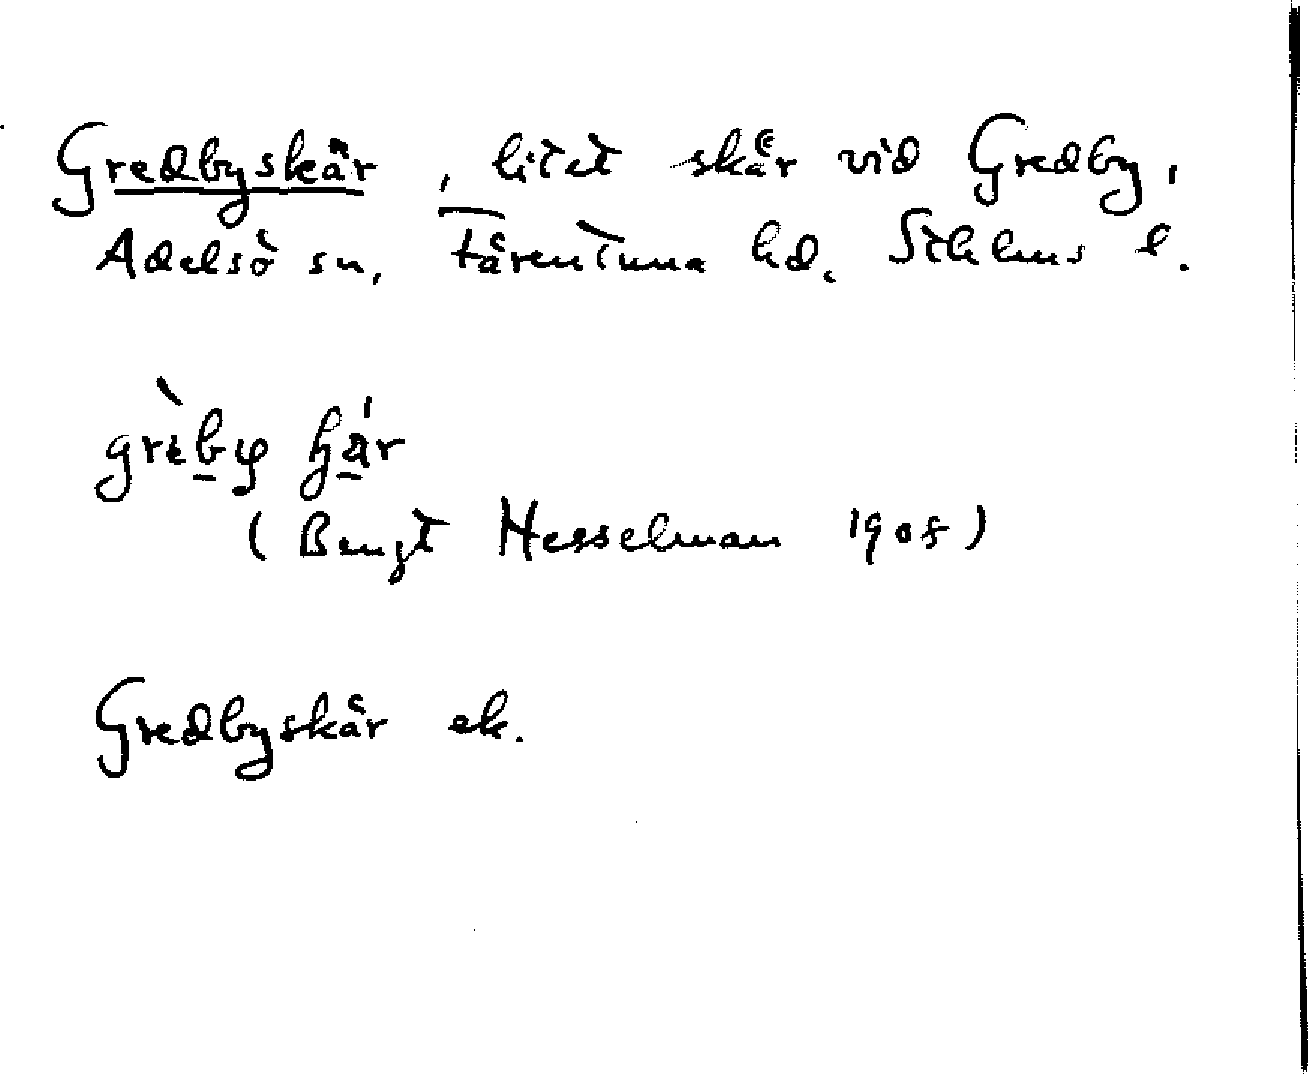 Gredbyskär, litet skär vid Gredby,
Adelsö sn, Färentuna hd. Sthlms l.
(Bengt Hesselman 1905)
Gredbyskär ek.